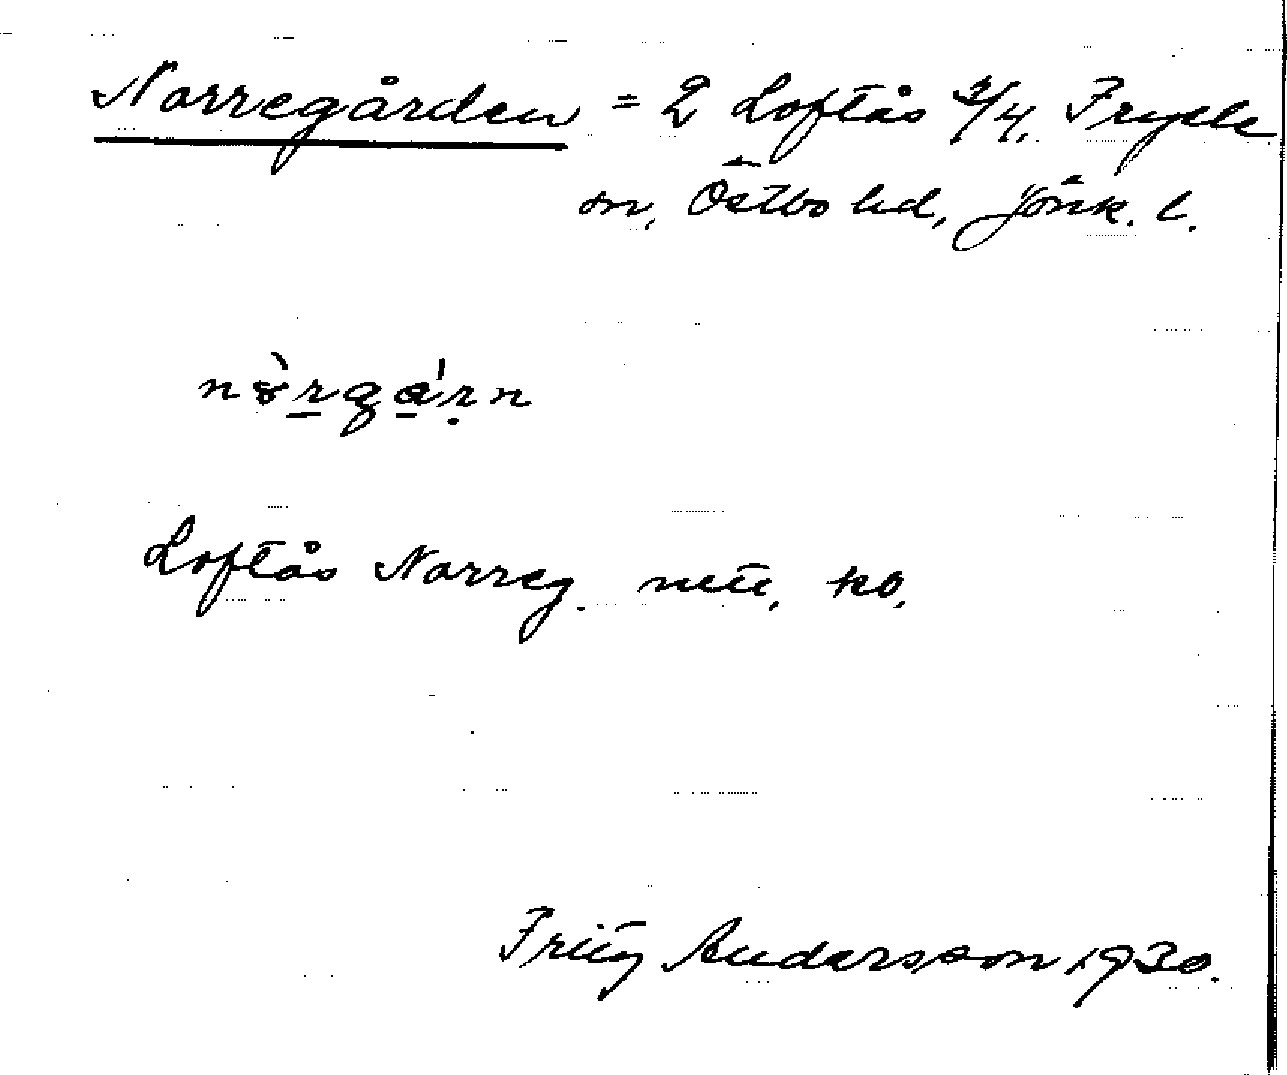 Norregården = 2 Loftås 3/4. Fryele
sn, Östbo hd, Jönk. l.
Loftås Norreg.
Fritz Andersson 1930.